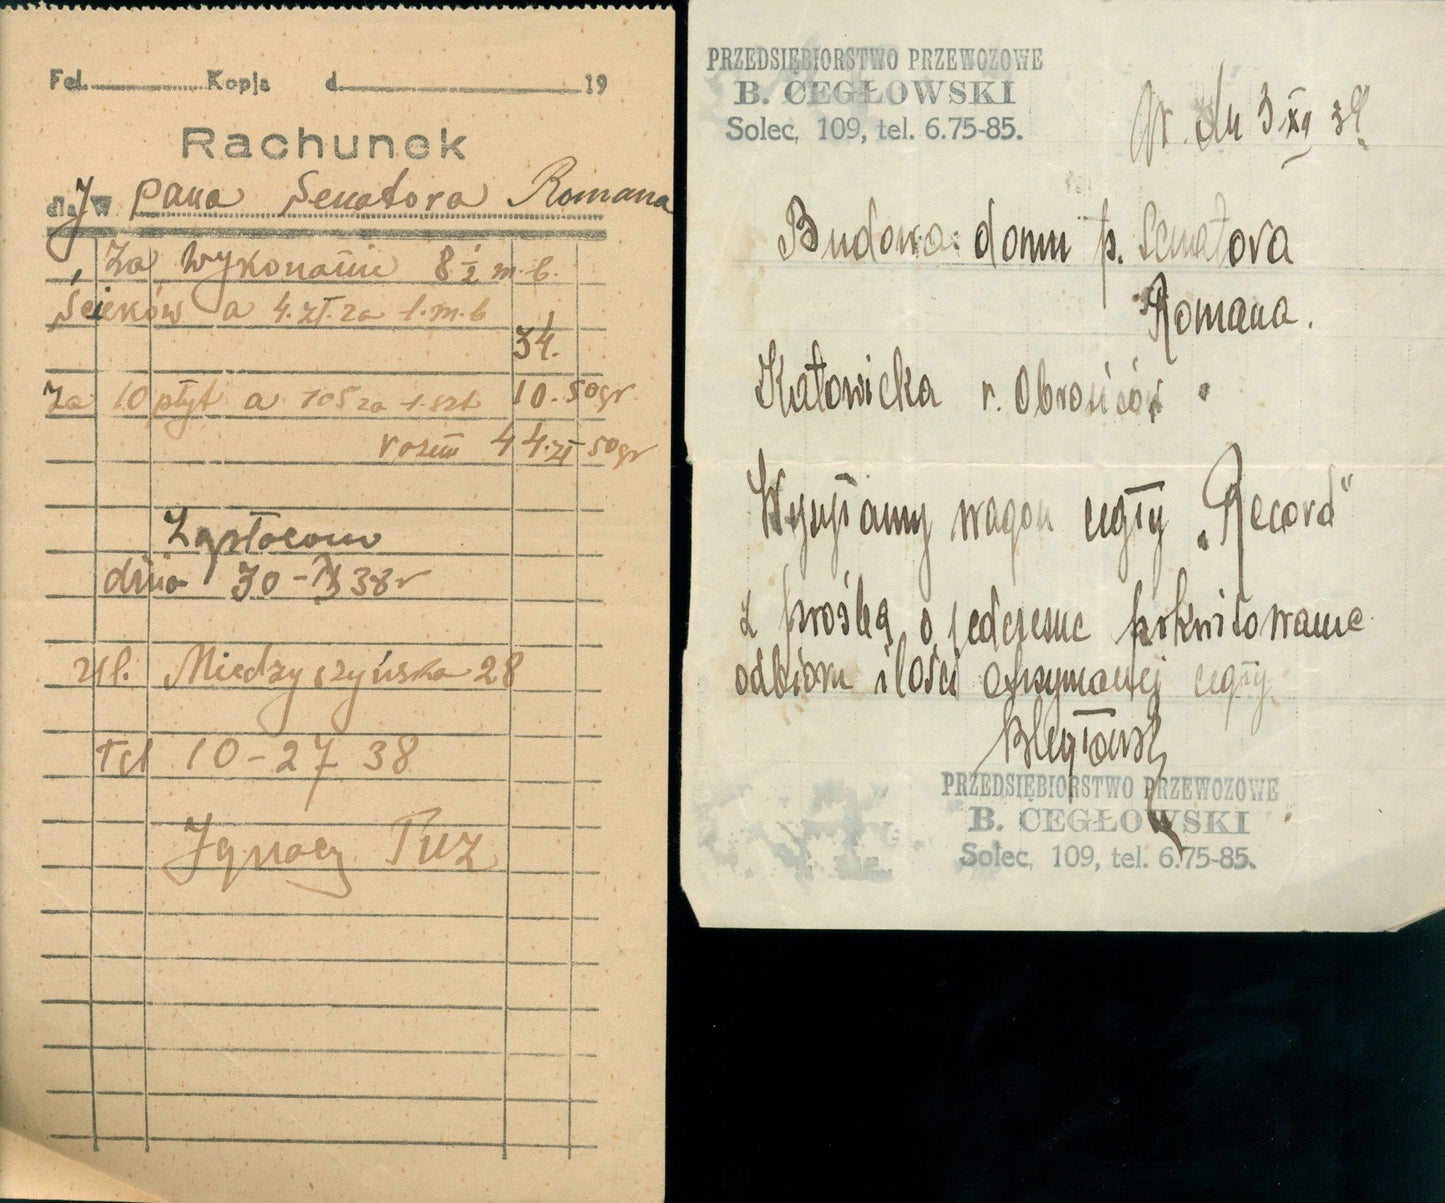 Fol. Kopja d. 19
Rachunek
dla J W pana Senatora Romana
Za wykonanie 8 ½ m.b.
ścieków a 4.zł. za 1.m.b
34.
Za 10 płyt a 105 za 1.szt 10.50gr
razem 44.zł 50gr
Zapłacono
dnia 30-38r
ul. Miedzyszyńska 28
tel 10-27 38
Ignacy Tuz
PRZEDSIĘBIORSTWO PRZEWOZOWE
B. CEGŁOWSKI
Solec, 109, tel. 6.75-85.
W. dn 3 XI 38
Budowa domu p. Senatora
Romana.
Katowicka r. Obrońców
Wysyłamy wagon cegły „Record"
z prośbą o jednoczesne pokwitowanie
odbioru ilości otrzymanej cegły.
BCegłowski
PRZEDSIĘBIORSTWO PRZEWOZOWE
B. CEGŁOWSKI
Solec, 109, tel. 6.75-85.